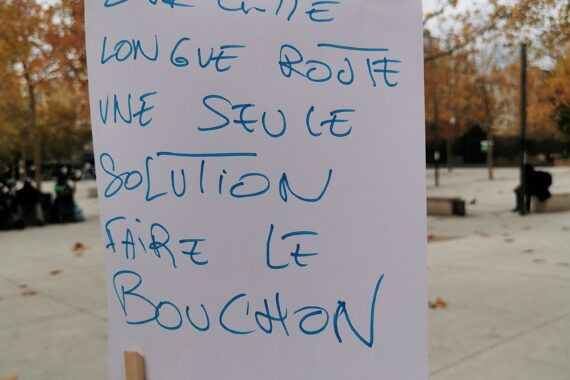 SUR CETTE
LONGUE ROUTE
UNE SEULE
SOLUTION
FAIRE LE
BOUCHON